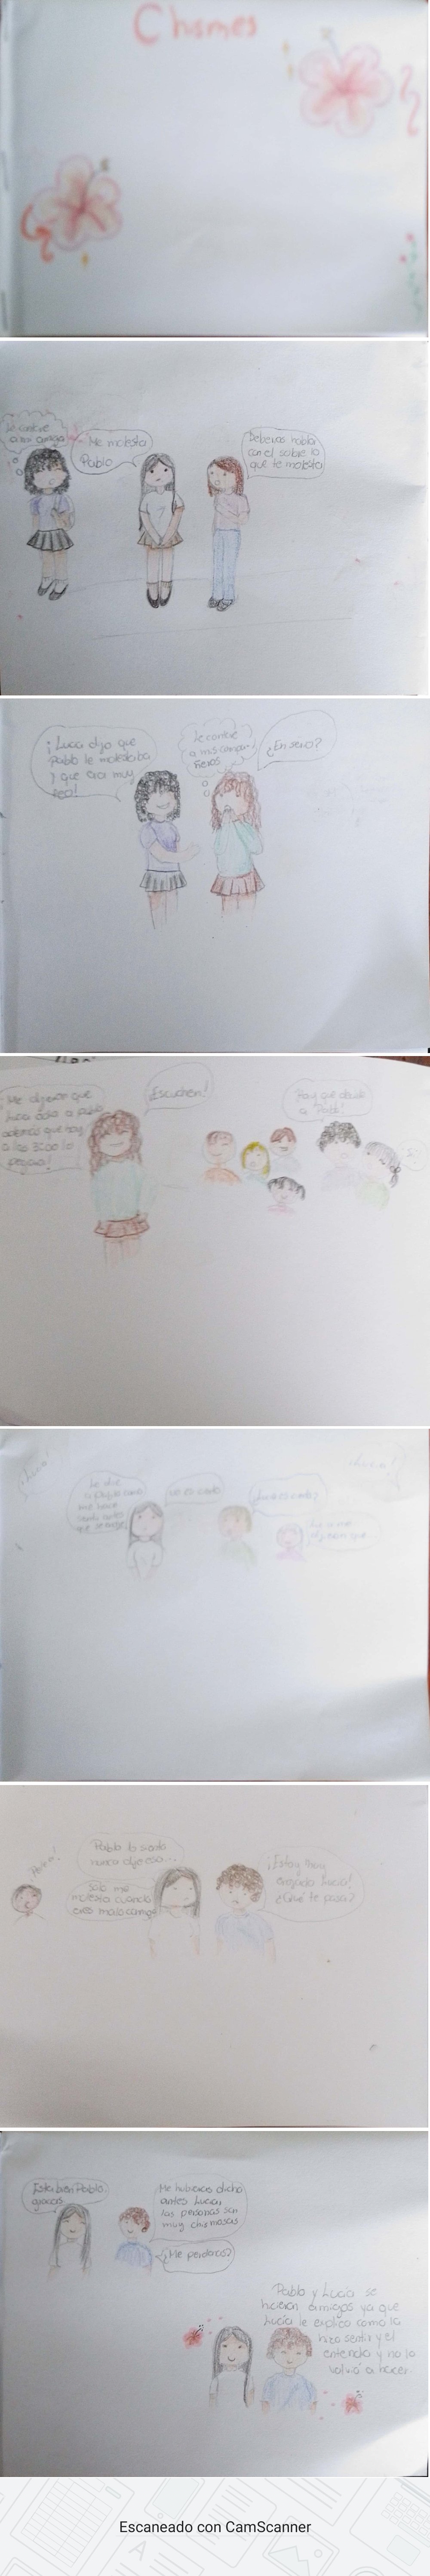 Chismes
Le contare
a mi amiga
Me molesta
Pablo
Debemos habla
con el sobre lo
que te molesta
¡Lucia dijo que
Pablo le molestaba
y que era muy
feo!
Le contare
a mis compañ
eros
¿En serio?
Me dijeron que
Lucia odia a Pablo
ademas que hoy
a las 3:00 lo
pegara!
¡Escuchen!
Hay que
a Pablo!
Le dire
a Pablo como
me hace
sentir antes
que
no es cierto
¿Lucia es cierto?
que
Pablo lo siento
nunca dije eso...
solo me
molesta cuando
eres malo conmigo
¡Estoy muy
enojado Lucia!
¿Que te pasa?
Esta bien Pablo,
gracias
Me hubieras dicho
antes Lucia,
las personas son
muy chismosas
¿Me perdonas?
Pablo y Lucia se
hicieron amigos ya que
Lucia le explico como la
hizo sentir y el
entendio y no lo
volvio a hacer.
Escaneado con CamScanner